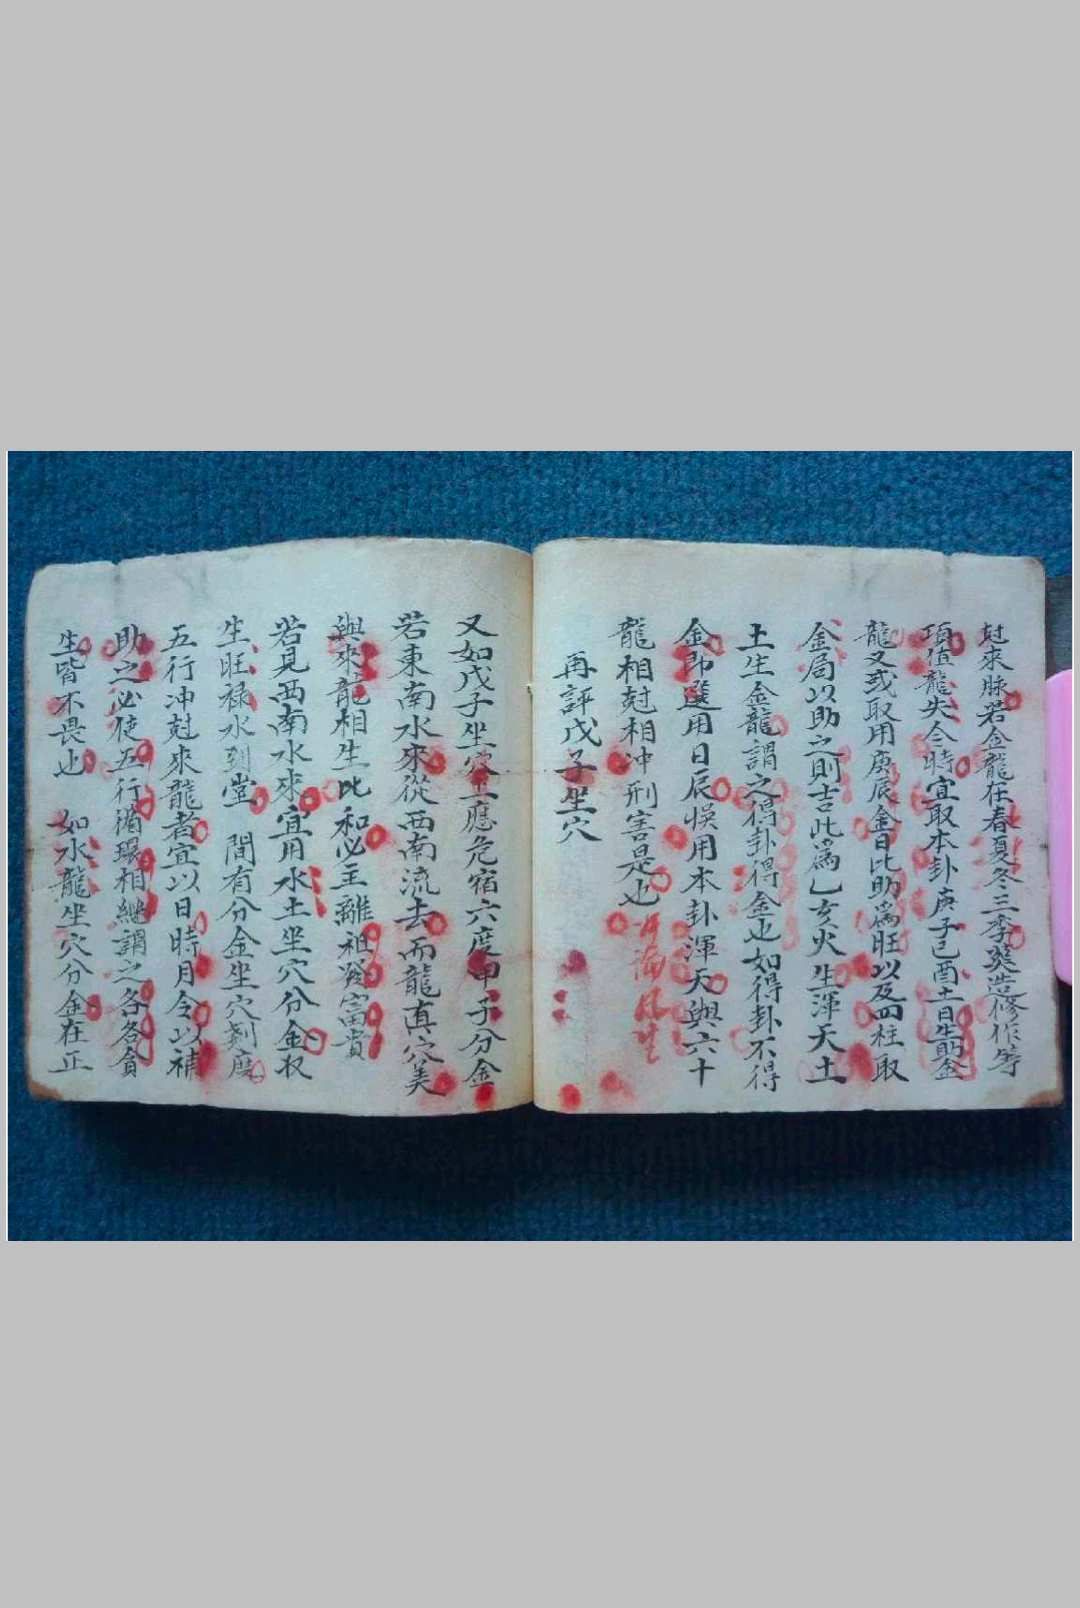 尅來脉若金龍在春夏冬三季葵造修作等
項值龍失令時宜取本卦庚子己酉土日生助金
龍又或取用庚辰金日比助為旺以及四柱取
金局以助之則吉此為乙亥火生渾天土
土生金龍謂之得卦得金也如得卦不得
金即選用日辰悞用本卦渾天與六十
龍相尅相冲刑害是也
再評戊子坐穴
又如戊子坐穴上應危宿六度甲子分金
若東南水來從西南流去而龍真穴美
與來龍相生比和必主離祖發富貴
若見西南水來宜用水土坐穴分金取
生旺祿水到堂 間有分金坐穴剋度
五行冲尅來龍者宜以日時月令以補
助之必使五行循環相繼謂之各各貪
生皆不畏也 如水龍坐穴分金在正